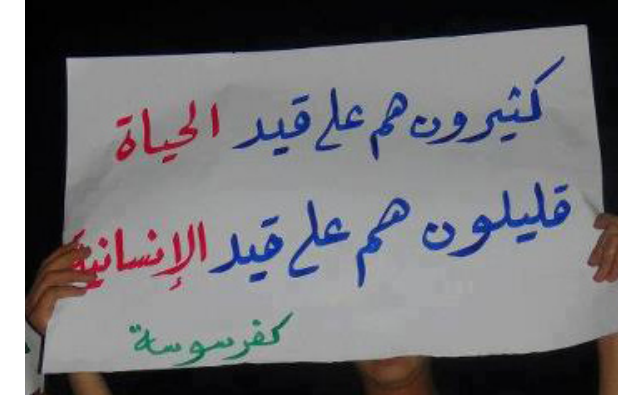 كثيرون هم على قيد الحياة
قليلون هم على قيد الإنسانية
كفرسوسة